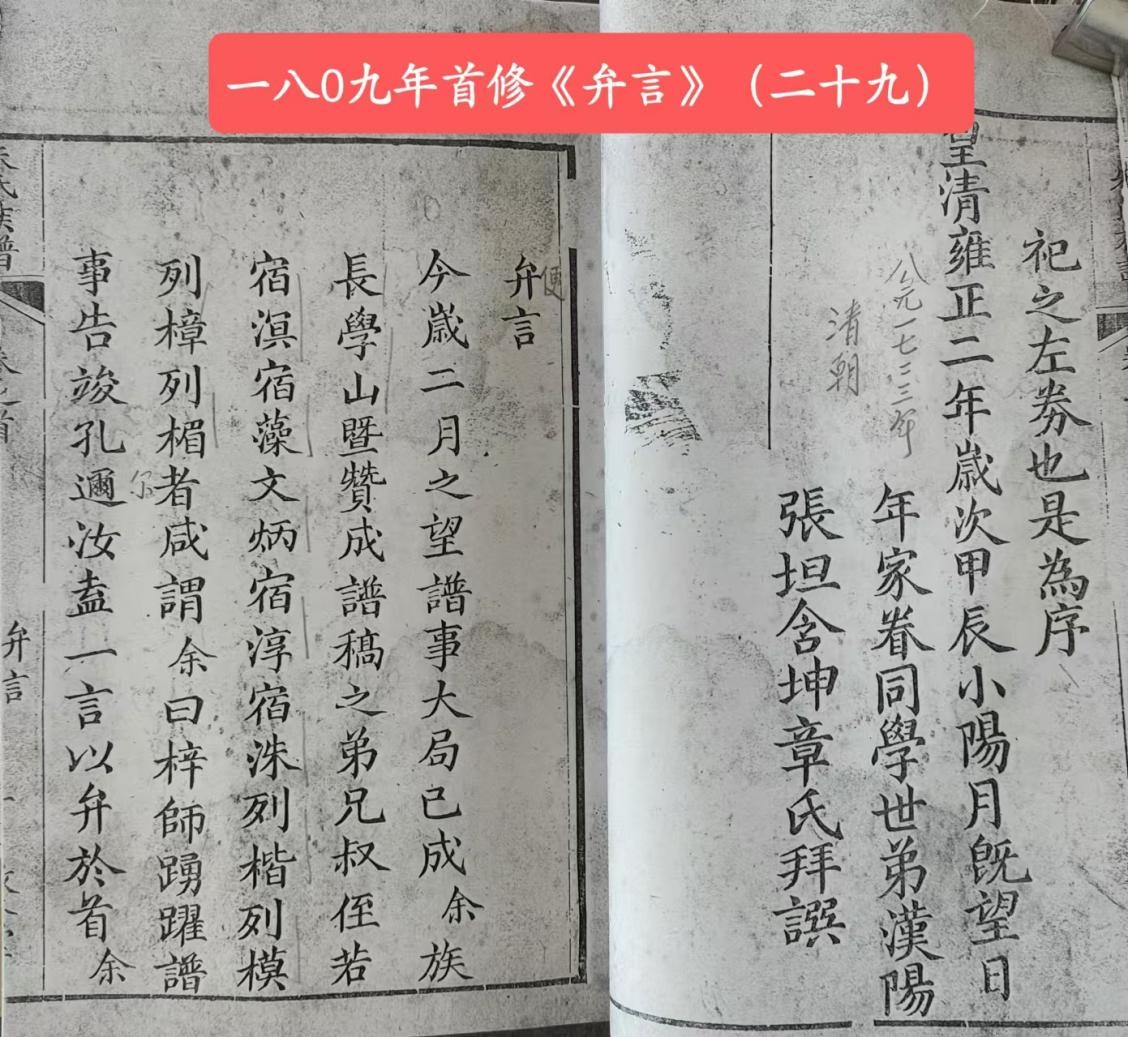 一八0九年首修《弁言》（二十九）
祀之左券也是為序
皇清雍正二年歲次甲辰小陽月既望日
公元一七三三年
清朝
年家眷同學世弟漢陽
張坦含坤章氏拜譔
弁言
便
今歲二月之望譜事大局已成余族
長學山暨贊成譜稿之弟兄叔侄若
宿溟宿藻文炳宿淳宿洙列楷列模
列樟列楣者咸謂余曰梓師踴躍譜
尔
事告竣孔邇汝盍一言以弁於首余
氏族譜
卷之首
弁言